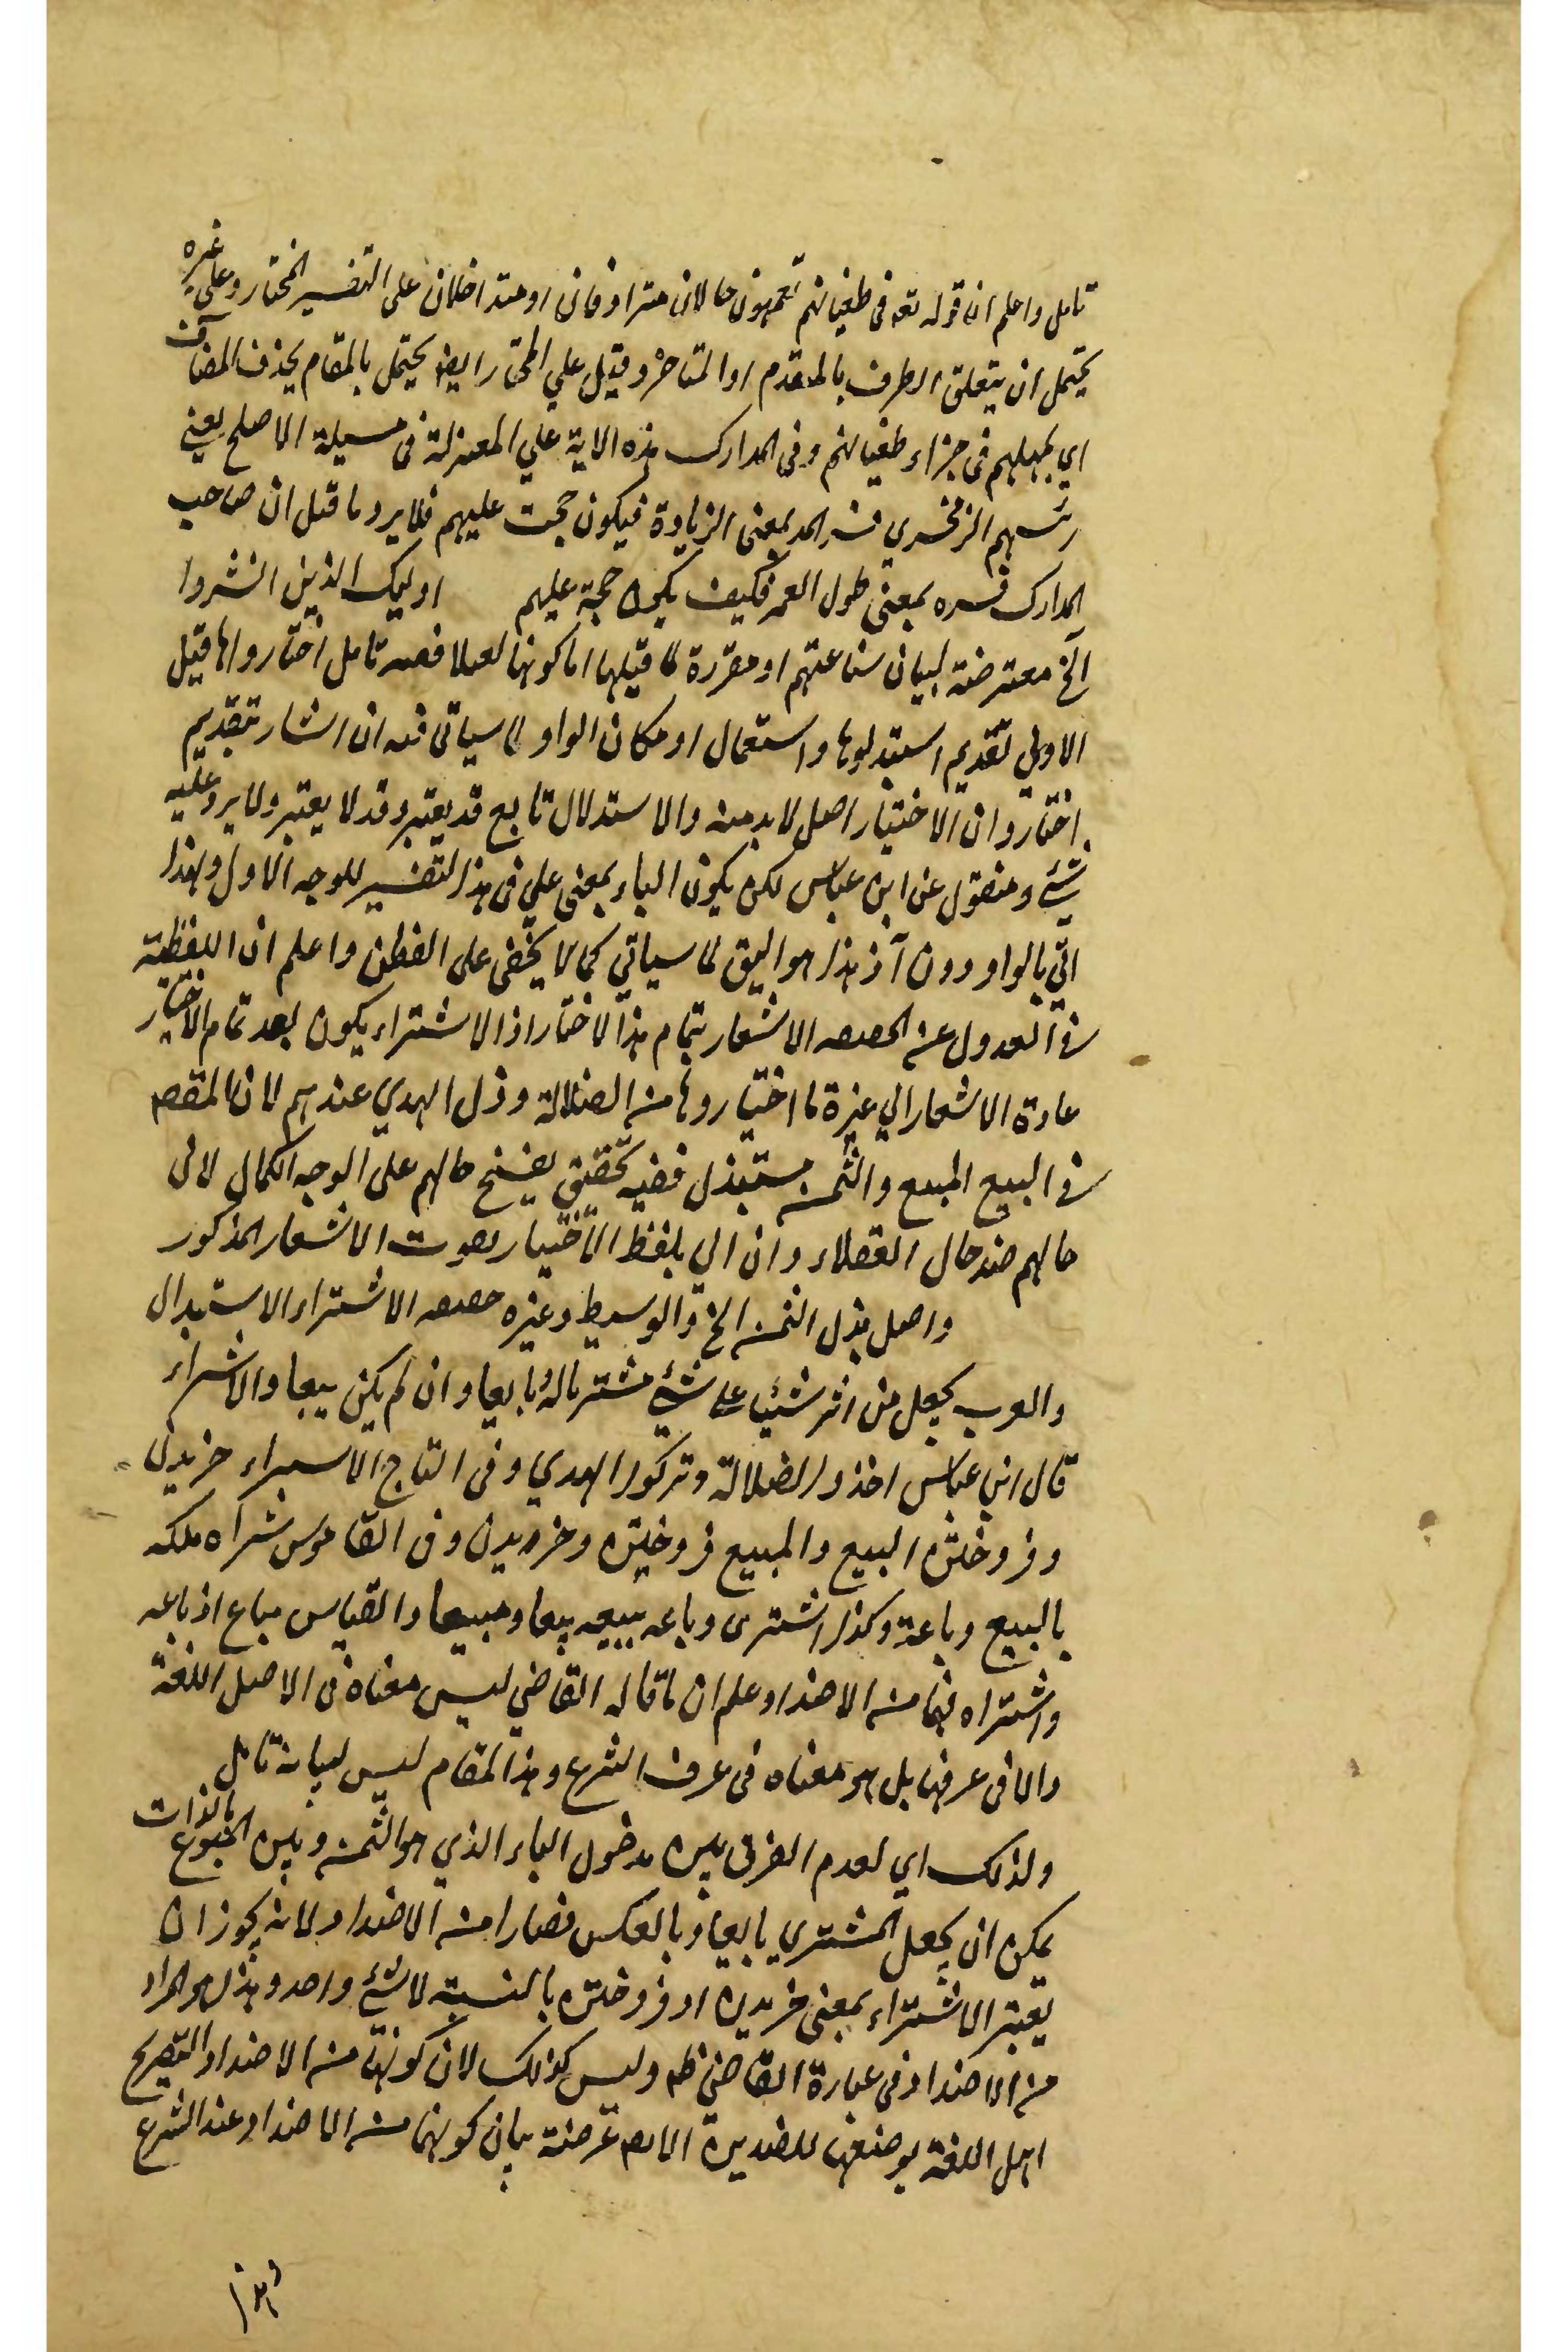 تامل واعلم ان قوله تعہ فی طغیانهم یعمهون حالان مترادفان او متداخلان علی التفسیر المختار وعلی غیره
یحتمل ان یتعلق الظرف بالمقدم او المتاخر وقیل علی المختار ایضا یحتمل بالمقام بحذف المضاف
ای یمهلهم فی جزاء طغیانهم وفی المدارک هذه الایة علی المعتزلة فی مسیلة الاصلح یعنی
رئسهم الزمخشری فسر المد بمعنی الزیادة فیکون حجت علیهم فلا یرد ما قیل ان صاحب
المدارک فسره بمعنی طول العمر فکیف یکون حجة علیهم اولیک الذین اشتروا
آلخ معترضة لبیان شناعتهم او مقررة لما قبلها اما کونها تعملا ففیه تامل اختاروا ها قیل
الاولی تقدیم استبدلوها واستعمال او مکان الواو لما سیاتی فیه ان اشار بتقدیم
اختاروا ان الاختیار اصل لا بد منه والاستدلال تابع قد یعتبر وقد لا یعتبر ولا یرد علیه
شئ ومنقول عن ابن عباس لکن یکون الباء بمعنی علی فی هذا التفسیر للوجه الاول ولهذا
اتی بالواو دون آذ هذا هو الیق لما سیاتی کما لا یخفی علی الفطن واعلم ان اللفظیة
فی العدول عن الحصصه الاشعار بتمام هذا الاختیار اذ الاشتراء یکون بعد تمام الاختیار
عادة الاشعار الی عزة ما اختیاروها من الضلالة وذل الهدی عندهم لان المقصہ
فی البیع المبیع والثمن مستبذل ففیه تحقیق یفضح حالهم علی الوجه الکمال لان
حالهم ضد حال العقلاء وان اتی بلفظ الاختیار یفوت الاشعار المذکور
واصل بذل الثمن الخ والوسیط وغیره حصصه الاشتراء الاستبدال
والعرب یجعل من اثر شئیا علی شئ مشتریا له وبایعا وان لم یکن بیعا والاشراء
قال ابن عباس اخذوا الضلالة وترکوا الهدی وفی التاج الاشتراء خریدن
وفروختن البیع والمبیع فروختن وخریدن وفی القاموس شراه ملکه
بالبیع وباعة وکذا اشتری وباعه یبیعه بیعا ومبیعا والقیاس مباع اذ باعه
واشتراه فهما من الاضداد وعلم ان ما قاله القاضی لیس معناه فی الاصل اللغة
والا فی عرفها بل هو معناه فی عرف الشرع وهذا المقام لیس لبیانه تامل
ولذلک ای لعدم الفرق بین مدخول الباء الذی هو الثمن وبین المبیوع بالذات
یمکن ان یجعل المشتری بایعا وبالعکس فصارا من الاضداد ولانه یجوز ان
یعتبر الاشتراء بمعنی خریدن او فروختن بالنسبة لا شئ واحد وهذا هو المراد
من الاضداد فی عبارة القاضی ظہ ولیس کذلک لان کونهما من الاضداد التصریح
اهل اللغة بوضعها للضدین الا ان غرضه بیان کونهما من الاضداد عند الشرع